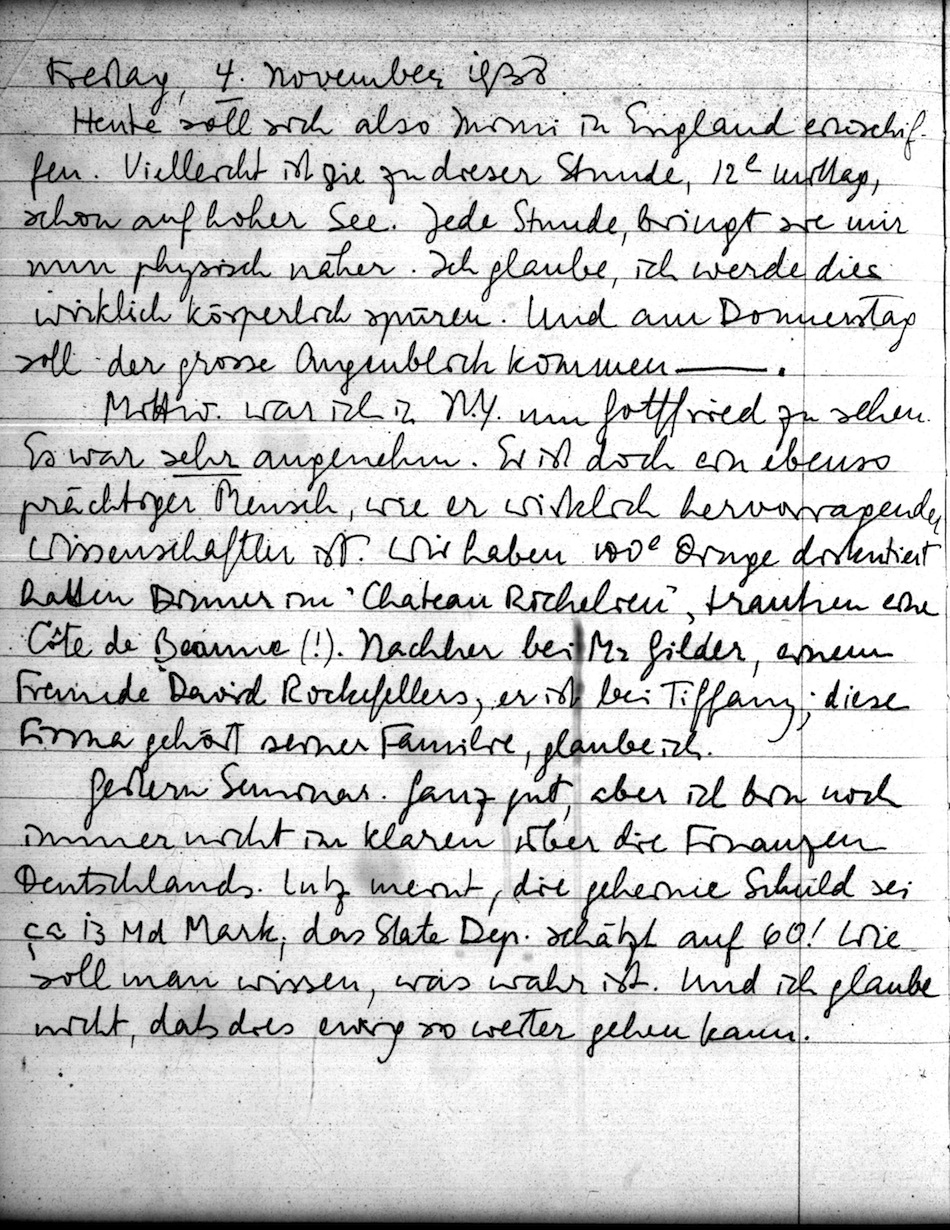 Freitag, 4. November 1938
Heute soll sich also Mimi in England einschif-
fen. Vielleicht ist sie zu dieser Stunde, 12e mittag,
schon auf hoher See. Jede Stunde, bringt sie mir
nun physisch näher. Ich glaube, ich werde dies
wirklich körperlich spüren. Und am Donnerstag
soll der grosse Augenblick kommen ——.
Mittw. war ich in N.Y. um Gottfried zu sehen.
Es war sehr angenehm. Er ist doch ein ebenso
prächtiger Mensch, wie er wirklich hervorragender
Wissenschaftler ist. Wir haben 100e Dinge diskutiert
hatten Dinner im "Chateau Richelieu", tranken eine
Côte de Beaune (!). Nachher bei Mr Gilder, einem
Freunde David Rockefellers, er ist bei Tiffany; diese
Firma gehört seiner Familie, glaube ich.
Gestern Seminar. Ganz gut, aber ich bin noch
immer nicht im klaren über die Finanzen
Deutschlands. Lutz meint, die geheime Schuld sei
ça 13 Md Mark, das State Dep. schätzt auf 60! Wie
soll man wissen, was wahr ist. Und ich glaube
nicht, dass dies ewig so weiter gehen kann.